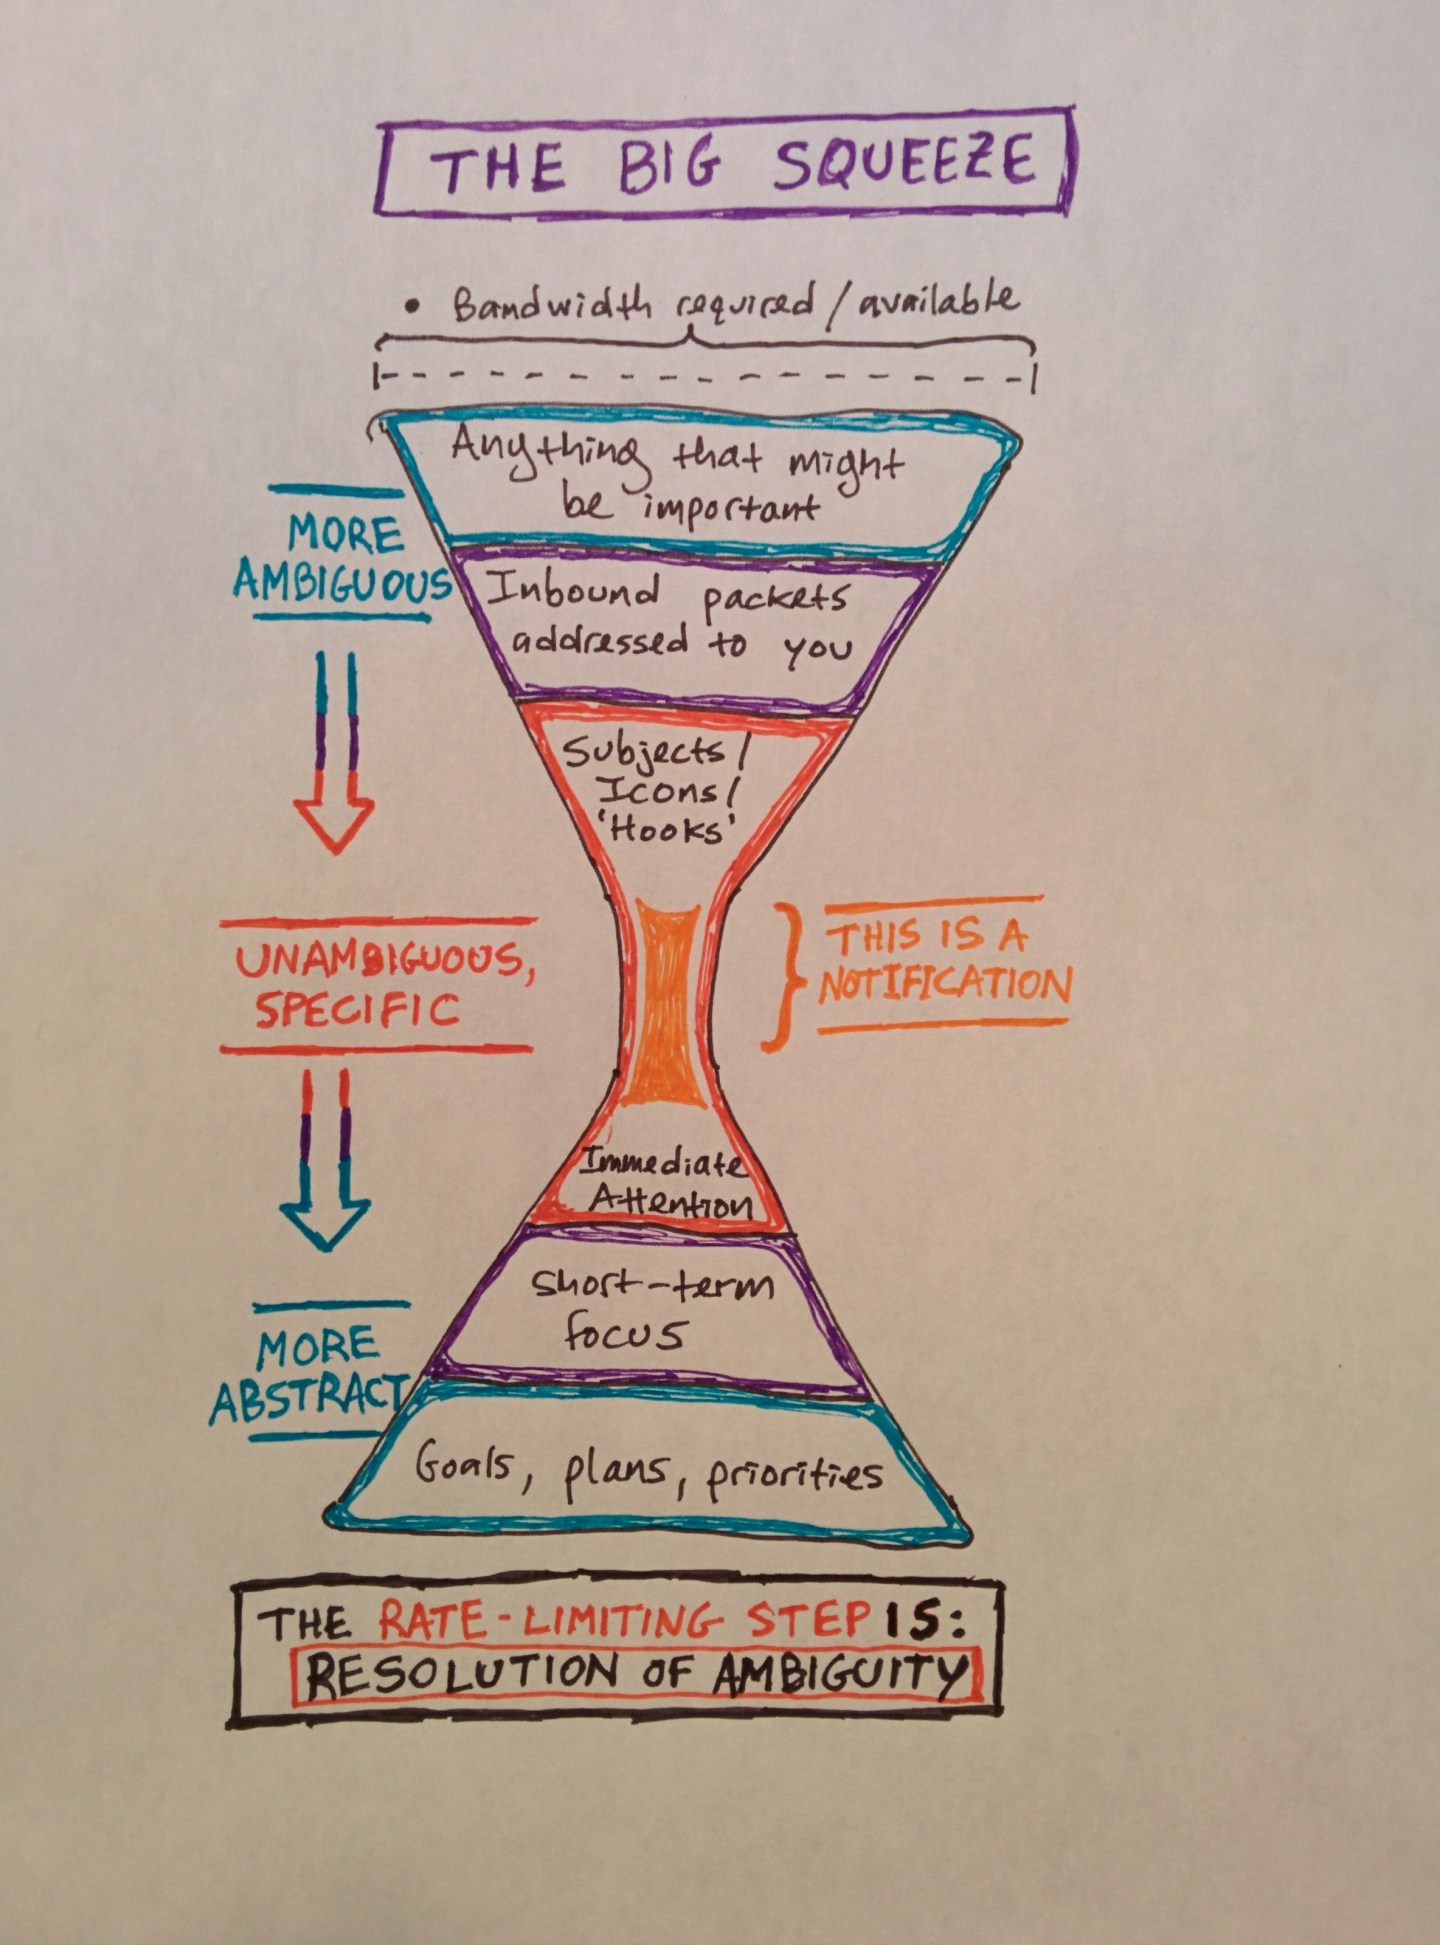 THE BIG SQUEEZE
• Bandwidth required / available
Anything that might
be important
MORE
AMBIGUOUS
Inbound packets
addressed to you
Subjects/
Icons/
'Hooks'
UNAMBIGUOUS,
SPECIFIC
THIS IS A
NOTIFICATION
Immediate
Attention
short-term
focus
MORE
ABSTRACT
Goals, plans, priorities
THE RATE-LIMITING STEP IS:
RESOLUTION OF AMBIGUITY